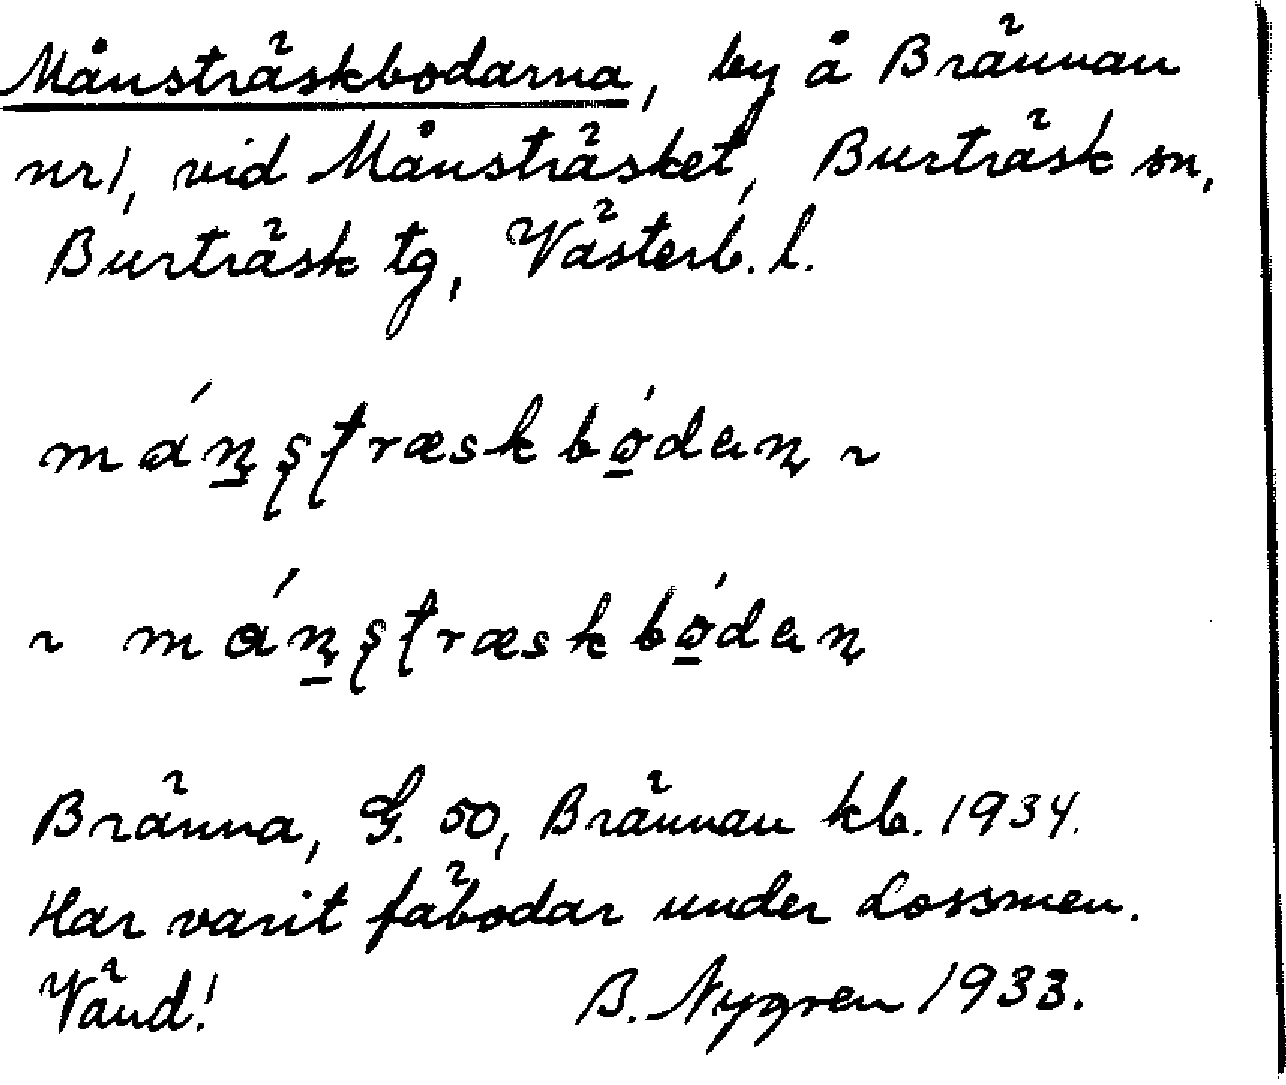 Månsträskbodarna, by å Brännan
nr 1, vid Månsträsket, Burträsk sn,
Burträsk tg, Västerb. l.
mánstræskbódan ~
~ mánstræskbódan
Bränna, G. 50, Brännan kb. 1934.
Har varit fäbodar under Lossmen.
Vänd! B. Nygren 1933.